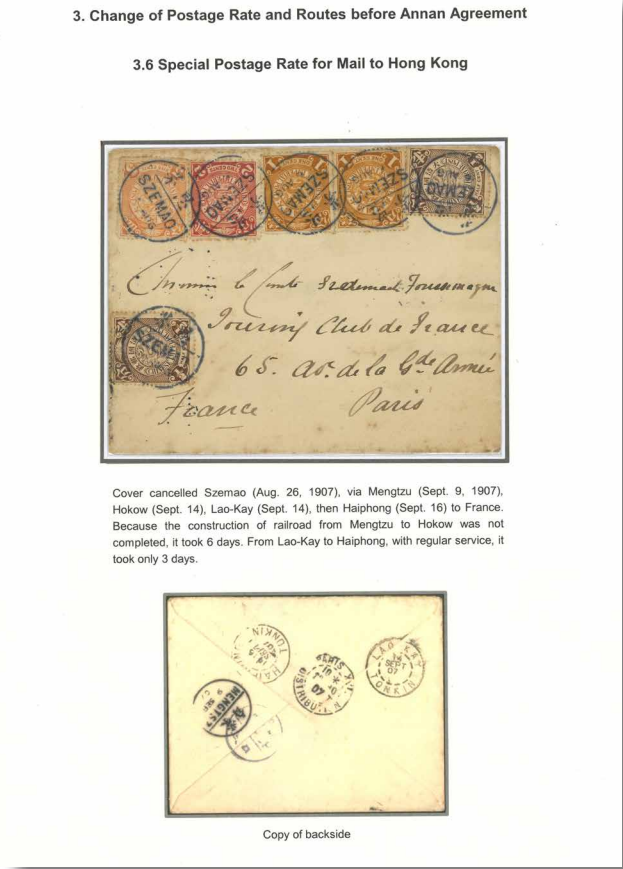 3. Change of Postage Rate and Routes before Annan Agreement
3.6 Special Postage Rate for Mail to Hong Kong
SZEMAO
SZEMAO
SZEMAO
SZEMAO
le Comte
Touring Club de France
65. Av. de la Gde Armée
France Paris
Cover cancelled Szemao (Aug. 26, 1907), via Mengtzu (Sept. 9, 1907),
Hokow (Sept. 14), Lao-Kay (Sept. 14), then Haiphong (Sept. 16) to France.
Because the construction of railroad from Mengtzu to Hokow was not
completed, it took 6 days. From Lao-Kay to Haiphong, with regular service, it
took only 3 days.
TONKIN
LAO-KAY
14
SEPT
07
TONKIN
PARIS
DISTRIBUTION
07
MENGTSZ
9 SEP
Copy of backside